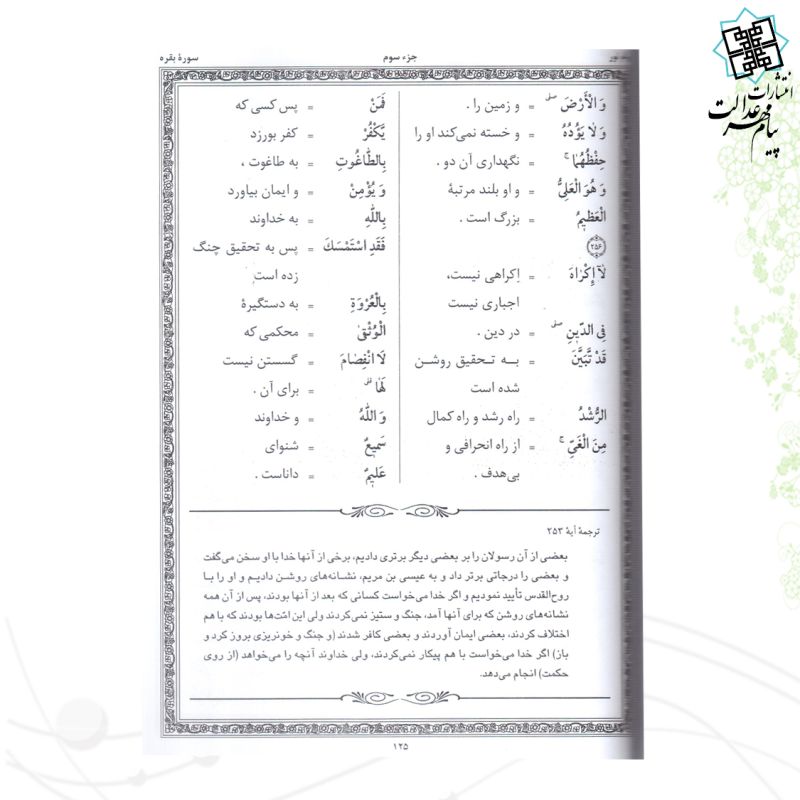 انتشارات
پیام مهر عدالت
سورهٔ بقره
جزء سوم
وَ الْأَرْضَ = و زمین را .
وَ لٰا یَؤُدُهُ = و خسته نمی‌کند او را
حِفْظُهُمٰا = نگهداری آن دو .
وَ هُوَ الْعَلِیُّ = و او بلند مرتبهٔ
الْعَظیمُ = بزرگ است .
۲۵۶
لٰا إِکْرٰاهَ = اِکراهی نیست،
اجباری نیست
فِی الدّینِ = در دین .
قَدْ تَبَیَّنَ = به تحقیق روشن
شده است
الرُّشْدُ = راه رشد و راه کمال
مِنَ الْغَیِّ = از راه انحرافی و
بی‌هدف .
فَمَنْ = پس کسی که
یَکْفُرْ = کفر بورزد
بِالطّٰاغُوتِ = به طاغوت ،
وَ یُؤْمِنْ = و ایمان بیاورد
بِاللّٰهِ = به خداوند
فَقَدِ اسْتَمْسَكَ = پس به تحقیق چنگ
زده است
بِالْعُرْوَةِ = به دستگیرهٔ
الْوُثْقیٰ = محکمی که
لَا انْفِصٰامَ = گسستن نیست
لَهٰا = برای آن .
وَ اللّٰهُ = و خداوند
سَمیعٌ = شنوای
عَلیمٌ = داناست .
ترجمهٔ آیهٔ ۲۵۳
بعضی از آن رسولان را بر بعضی دیگر برتری دادیم، برخی از آنها خدا با او سخن می‌گفت
و بعضی را درجاتی برتر داد و به عیسی بن مریم، نشانه‌های روشن دادیم و او را با
روح‌القدس تأیید نمودیم و اگر خدا می‌خواست کسانی که بعد از آنها بودند، پس از آن همه
نشانه‌های روشن که برای آنها آمد، جنگ و ستیز نمی‌کردند ولی این امّت‌ها بودند که با هم
اختلاف کردند، بعضی ایمان آوردند و بعضی کافر شدند (و جنگ و خونریزی بروز کرد و
باز) اگر خدا می‌خواست با هم پیکار نمی‌کردند، ولی خداوند آنچه را می‌خواهد (از روی
حکمت) انجام می‌دهد.
۱۲۵